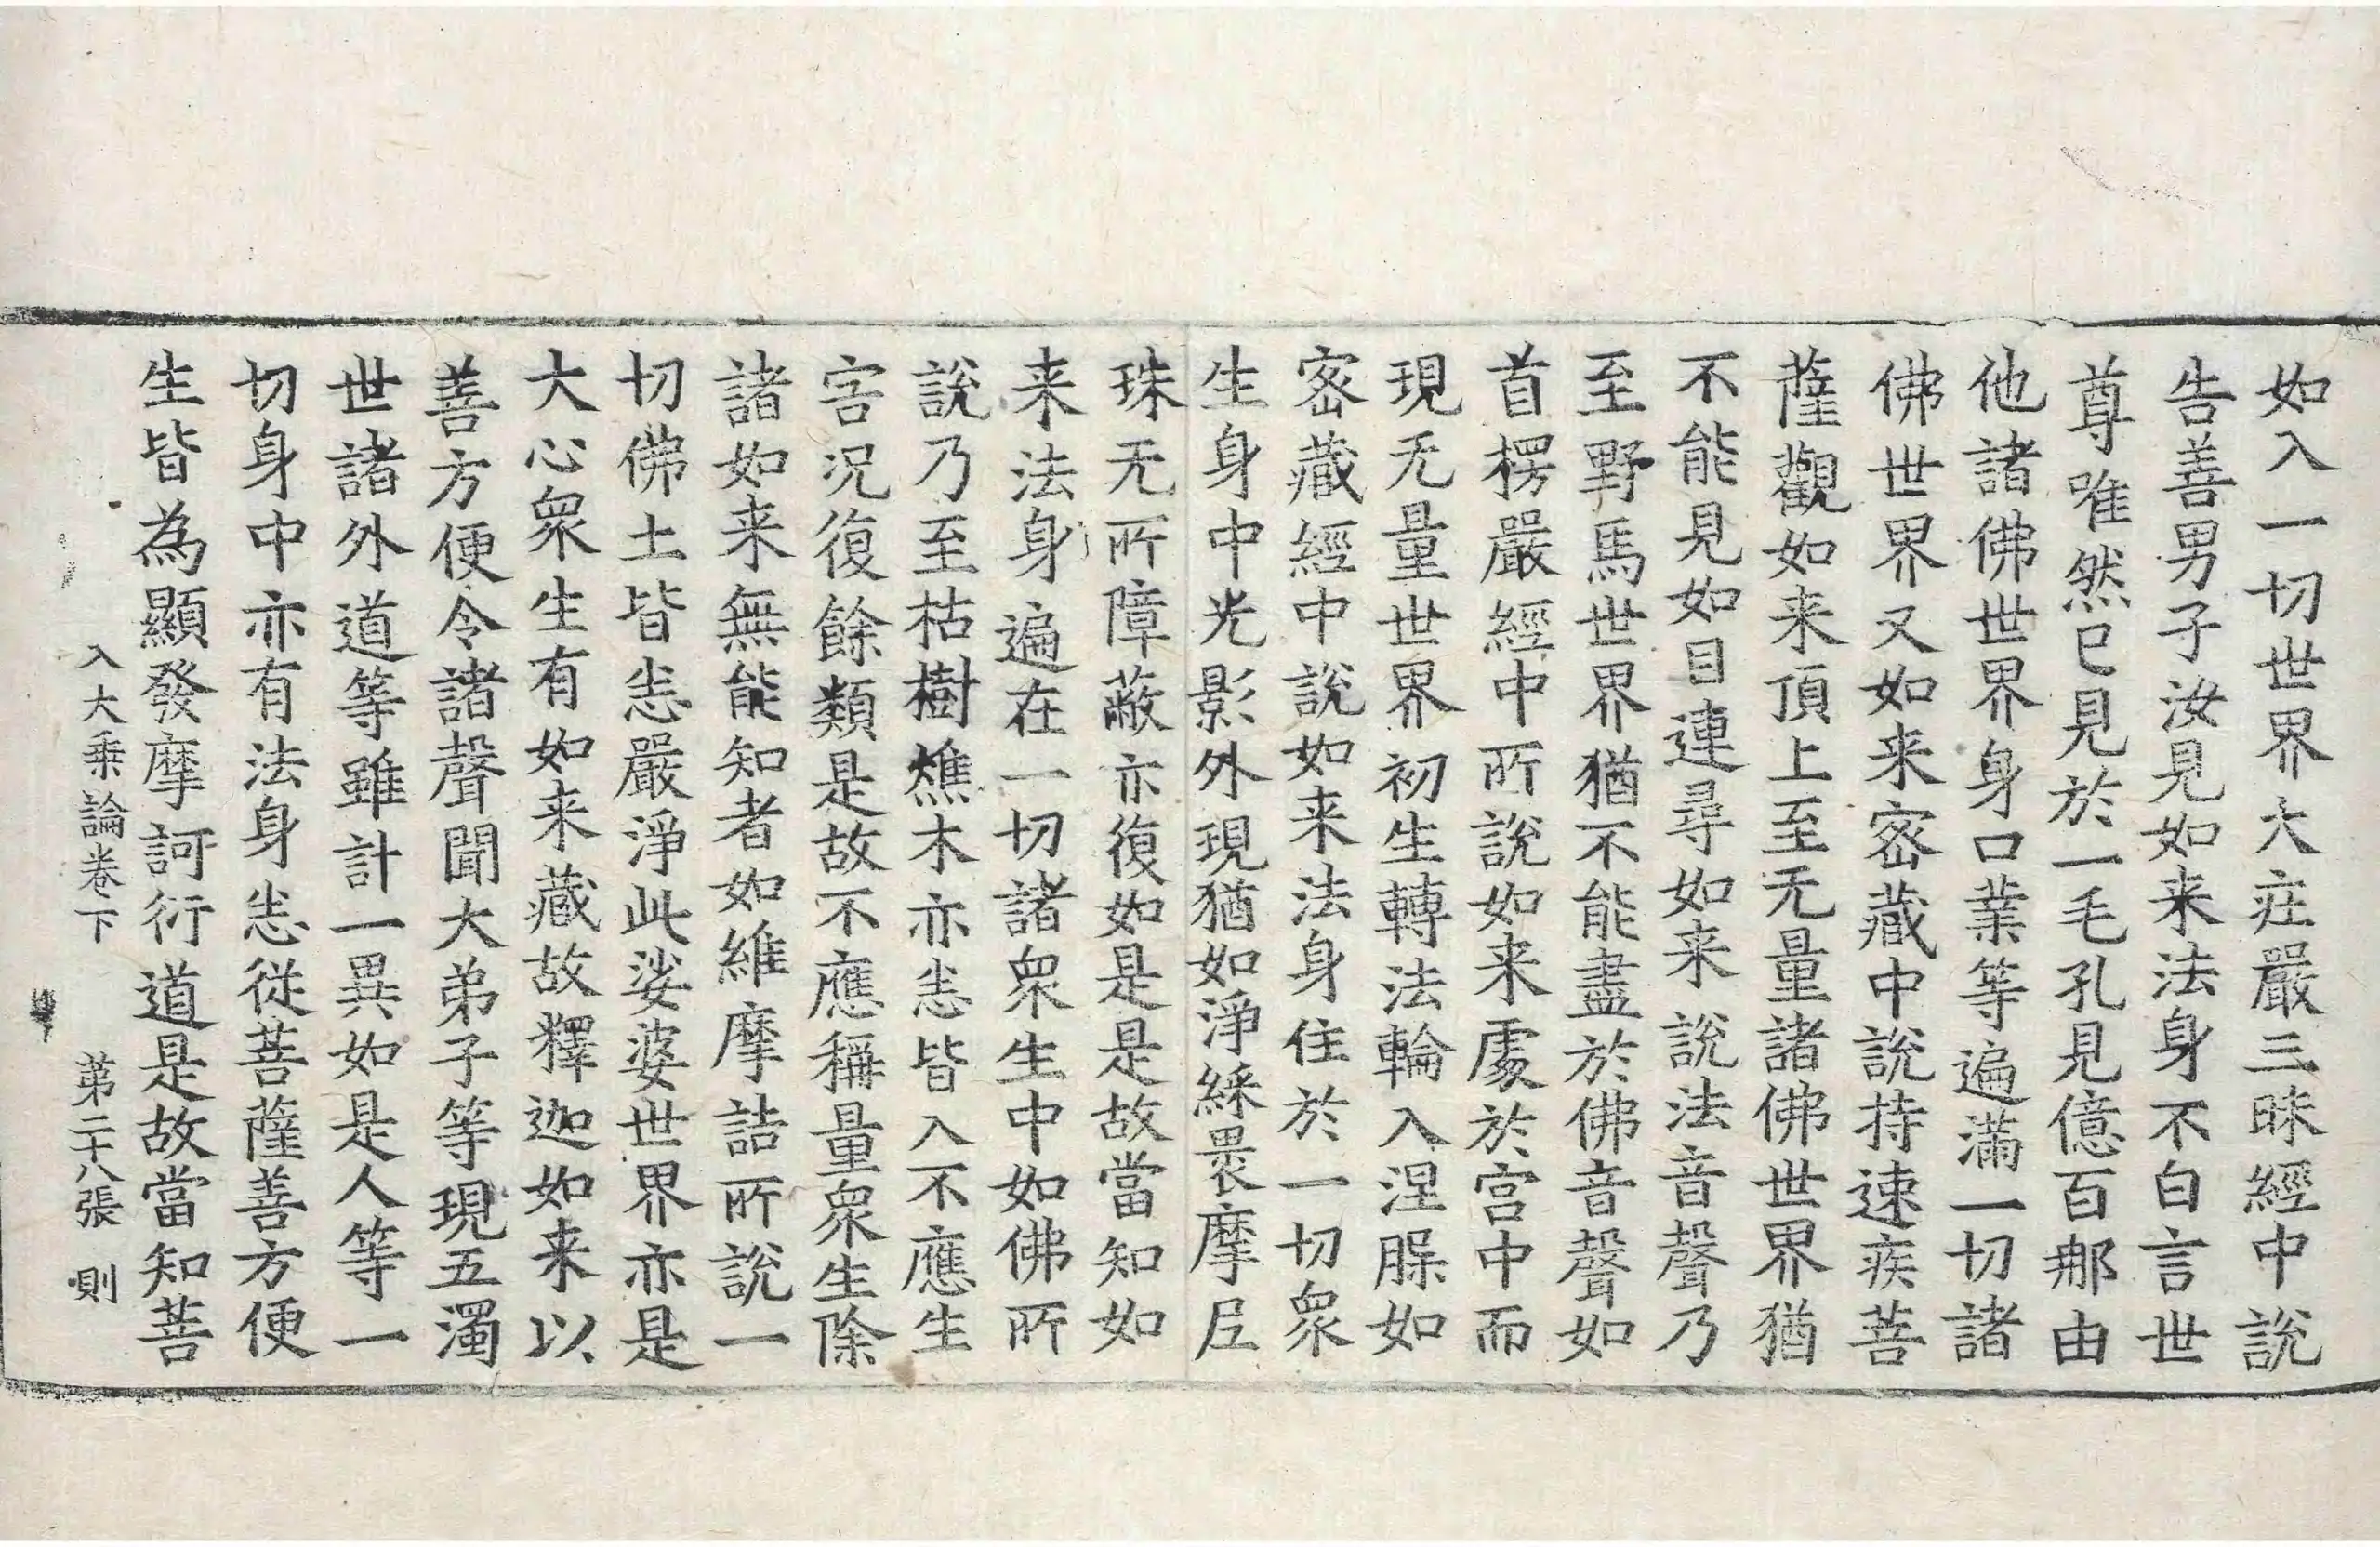 如入一切世界大庄嚴三昧經中說
告善男子汝見如来法身不白言世
尊唯然已見於一毛孔見億百那由
他諸佛世界身口業等遍滿一切諸
佛世界又如来宻藏中說持速疾菩
薩觀如来頂上至无量諸佛世界猶
不能見如目連尋如来說法音聲乃
至野馬世界猶不能盡於佛音聲如
首楞嚴經中所說如来處於宮中而
現无量世界初生轉法輪入涅槃如
宻藏經中說如来法身住於一切衆
生身中光影外現猶如淨綵褁摩尼
珠无所障蔽亦復如是是故當知如
来法身遍在一切諸衆生中如佛所
說乃至枯樹燋木亦恙皆入不應生
害況復餘類是故不應稱量衆生除
諸如来無能知者如維摩詰所說一
切佛土皆恙嚴淨此娑婆世界亦是
大心衆生有如来藏故釋迦如来以
善方便令諸聲聞大弟子等現五濁
世諸外道等雖計一異如是人等一
切身中亦有法身恙從菩薩善方便
生皆為顯發摩訶衍道是故當知菩
入大乗論卷下　第二十八張　則